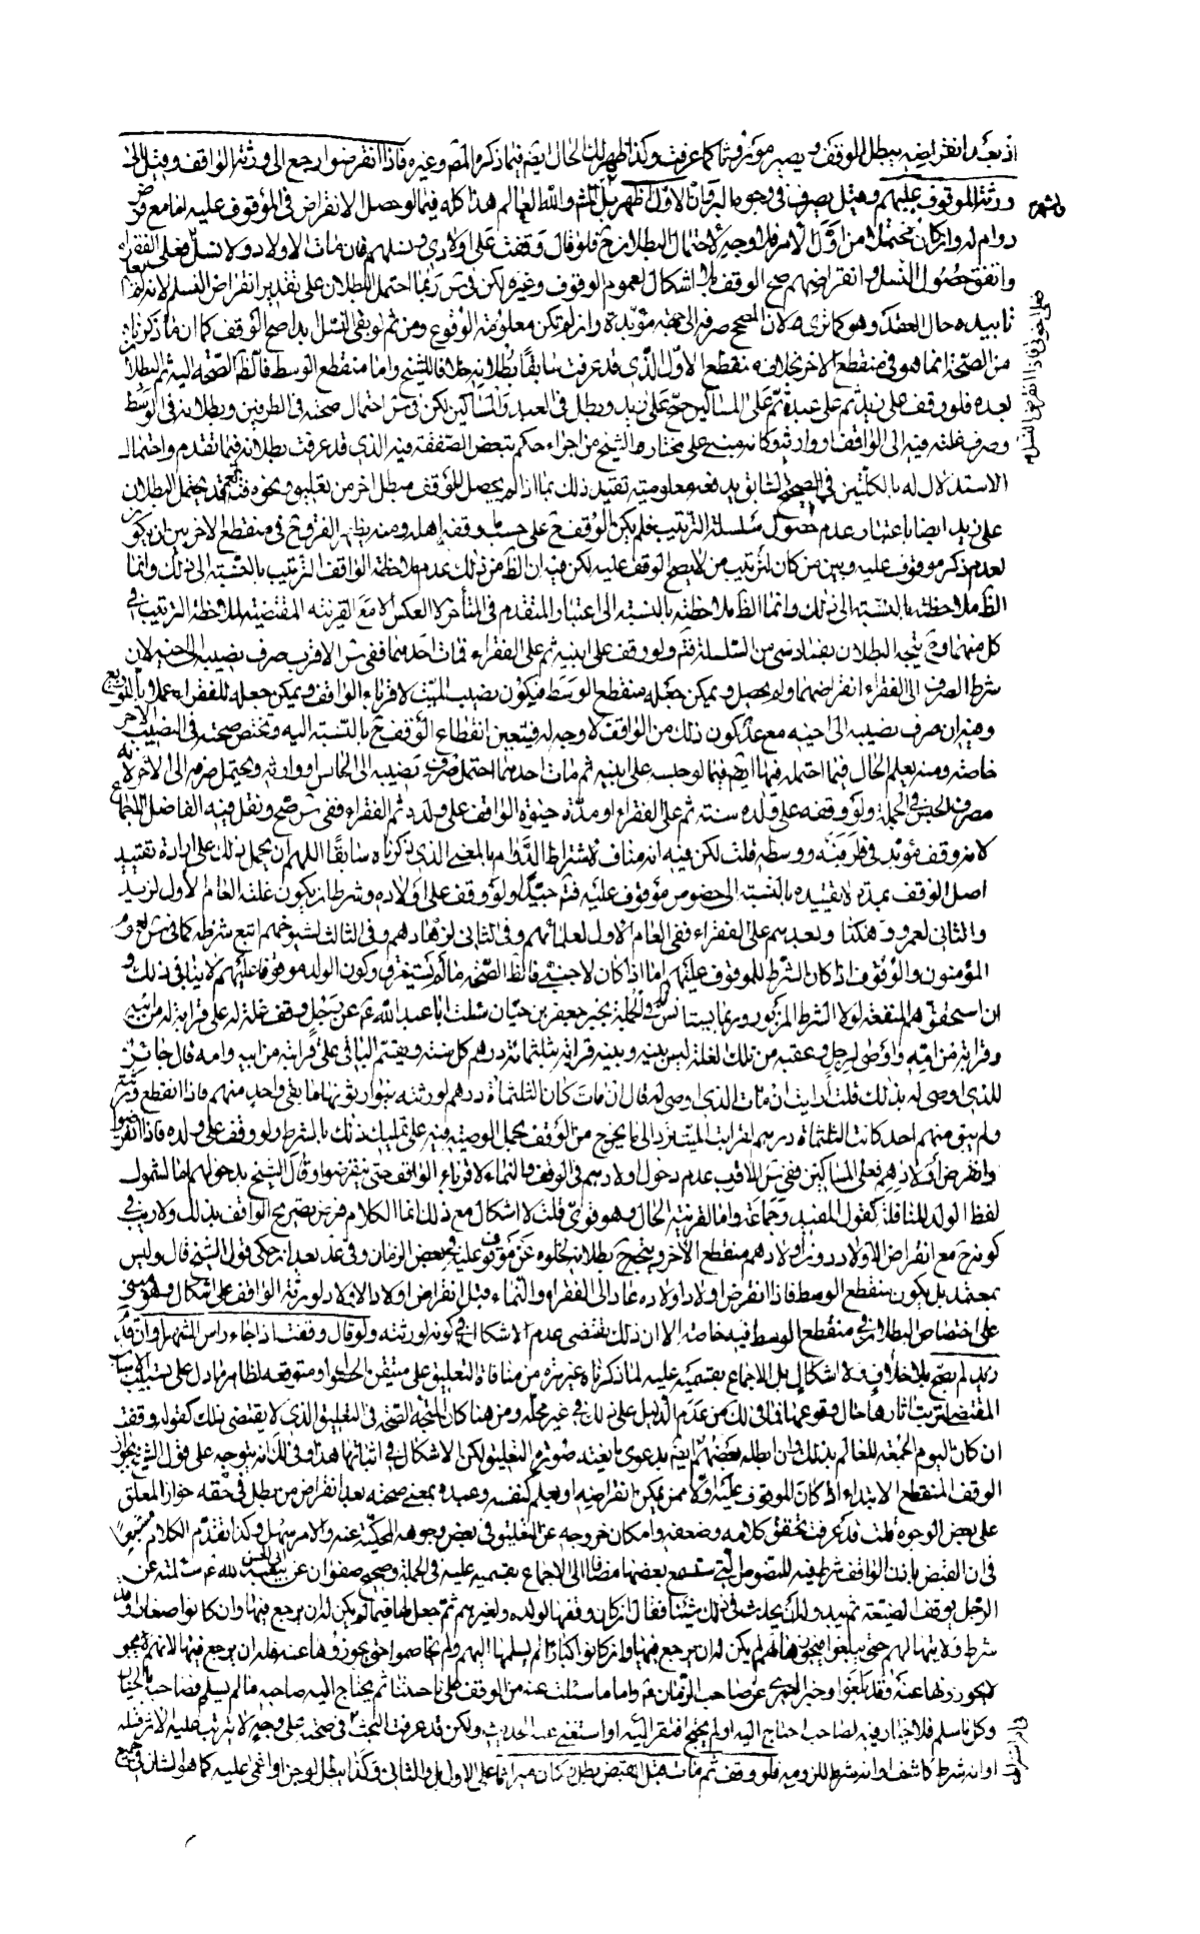 اذ بعد انقراضه يبطل الوقف و يصير موروثا كما عرفت وكذا ظهر لك الحال ايضا فيما ذكره المص وغيره فاذا انقرضوا رجع الى ورثة الواقف وقيل الى
ورثة الموقوف عليهم وقيل يصرف في وجوه البر والاول اظهر بل اشهر والله العالم هذا كله فيما لو حصل الانقراض في الموقوف عليه اما مع فرض
دوامه وان كان محتملا من اول الامر فلا وجه لاحتمال البطلان ح فلو قال وقفت على اولادي ونسلهم فان مات الاولاد ولا نسل فعلى الفقراء
واتفق حصول النسل وانقراضهم صح الوقف بلا اشكال لعموم الوقوف وغيره لكن في س ربما احتمل البطلان على تقدير انقراض النسل لانه لم
تابيده حال العقد وهو كما ترى ولان المصحح صرفه الى جهة مؤبدة وان لم تكن معلومة الوقوع ومن ثم لو بقى النسل ابدا صح الوقف كما ان ما ذكرناه
من الصحة انما هو في منقطع الاخر بخلاف منقطع الاول الذي قد عرفت سابقا بطلانه خلافا للشيخ واما منقطع الوسط فالظ الصحة اليه ثم البطلان
بعده فلو وقف على زيد ثم على عبده ثم على المساكين صح على زيد وبطل في العبد والمساكين لكن في س احتمال صحته في الطرفين وبطلانه في الوسط
وصرف غلته فيه الى الواقف او وارثه وكانه مبني على مختاره الشيخ من اجراء حكم تبعض الصفقة فيه الذي قد عرفت بطلانه فيما تقدم واحتمال
الاستدلال له بالكليتين في الصحيح السابق يدفعه معلومية تقييد ذلك بما اذا لم يحصل للوقف مبطل اخر من تعليق ونحوه يحتمل البطلان
على زيد ايضا باعتبار عدم حصول سلسلة الترتيب فلم يكن الوقف ح على حسب ما وقفه اهله ومنه يظهر الفرق ح في منقطع الاخر بين ان يكون
لعدم ذكر موقوف عليه وبين من كان لترتيب من لا يصح الوقف عليه لكن فيه ان الظ من ذلك عدم ملاحظة الواقف الترتيب بالنسبة الى ذلك وانما
الظ ملاحظته بالنسبة الى ذلك وانما الظ ملاحظته بالنسبة الى اعتبار المتقدم في المتأخر لا العكس الا مع القرينة المقتضية لملاحظة الترتيب في
كل منهما وح يتجه البطلان بفساد شيء من السلسلة فتم ولو وقف على ابنيه ثم على الفقراء فمات احدهما ففي س الاقرب صرف نصيبه الى اخيه لان
شرط الصرف الى الفقراء انقراضهما ولم يحصل ويمكن جعله منقطع الوسط فيكون نصيب الميت لاقرباء الواقف ويمكن جعله للفقراء عملا بالتوزيع
وفيه ان صرف نصيبه الى اخيه مع عدم كون ذلك من الواقف لا وجه له فيتعين انقطاع الوقف ح بالنسبة اليه وتختص صحته في النصيب الاخر
خاصة ومنه يعلم الحال فيما احتمله فيها ايضا فيما لو حبسه على ابنيه ثم مات احدهما احتمل صرف نصيبه الى الحابس او وارثه ويحتمل صرفه الى الاخر لانه
مصرف الحبس في الجملة ولو وقفه على ولده سنة ثم على الفقراء او مدة حيوة الواقف على ولده ثم الفقراء ففي س صح ونقل فيه الفاضل الاجماع
لانه وقف مؤبد في طرفيه ووسطه قلت لكن فيه انه مناف لاشتراط الدوام بالمعنى الذي ذكرناه سابقا اللهم ان يحمل ذلك على ارادة تقييد
اصل الوقف بمدة لا تقييده بالنسبة الى خصوص موقوف عليه فتم جيدا ولو وقف على اولاده وشرط ان يكون غلة العام الاول لزيد
والثاني لعمرو وهكذا وبعدهم على الفقراء ففي العام الاول لعلمائهم وفي الثاني لزهادهم وفي الثالث لشيوخهم اتبع شرطه كما في س لعموم
المؤمنون والوقوف اذا كان الشرط للموقوف عليهم اما اذا كان لاجنبي فالظ الصحة ما لم يستغرق وكون الولد موقوفا عليهم لا ينافي ذلك و
ان استحقوهم المنفعة لولا الشرط المزبور وربما يستانس في الجملة بخبر جعفر بن حيان سئلت ابا عبد الله ع عن رجل وقف غلة له على قرابة له من ابيه
وقرابة من امه واوصى لرجل وعقبه من تلك الغلة ليس بينه وبينه قرابة بثلثمائة درهم كل سنة ويقسم الباقي على قرابته من ابيه وامه قال جائز
للذي اوصى له بذلك قلت ارايت ان مات الذي اوصى له قال ان مات كان الثلثمائة درهم لورثته يتوارثونها ما بقى واحد منهم فاذا انقطع ورثته
ولم يبق منهم احد كانت الثلثمائة درهم لقرابة الميت ترد الى ما يخرج من الوقف بحمل الوصية فيه على تمليك ذلك بالشرط ولو وقف على ولده فاذا انقرضوا
وانقرض اولادهم فعلى المساكين ففي س الاقرب عدم دخول اولادهم في الوقف فالنماء لاقرباء الواقف حتى ينقرضوا وقال الشيخ بدخولهم اما لشمول
لفظ الولد للنافلة كقول المفيد وجماعة واما لقرينة الحال وهو قوي قلت لا اشكال مع ذلك انما الكلام فرض تصريح الواقف بذلك ولا ريب في
كونه ح مع انقراض الاولاد دون اولادهم منقطع الاخر ويتجه ح بطلانه لخلوه عن موقوف عليه في بعض الزمان وفي عد بعد ان حكى قول الشيخ قال وليس
بمعتمد بل يكون منقطع الوسط فاذا انقرض اولاد اولاده عاد الى الفقراء والنماء قبل انقراض اولاد الاولاد لورثة الواقف على اشكال وهو مبني
على اختصاص البطلان في منقطع الوسط فيه خاصة الا ان ذلك يقتضى عدم الاشكال في كونه لورثته ولو قال وقفت اذا جاء راس الشهر او ان قدم
زيد لم يصح بلا خلاف ولا اشكال بل الاجماع بقسميه عليه لما ذكرناه غير مرة من منافاة التعليق على متيقن الحصول او متوقعه لظاهر ما دل على تسبيب الاسباب
المقتضى ترتب اثارها حال وقوعها فما في لك من عدم الدليل على ذلك في غير محله ومن هنا كان المتجه الصحة في التعليق الذي لا يقتضى ذلك كقوله وقفت
ان كان اليوم الجمعة للعالم بذلك وان ابطله بعضهم ايضا بدعوى مانعية صورة التعليق لكن الاشكال في اثباتها هذا وفي لك انه يتوجه على قول الشيخ بجواز
الوقف المنقطع الابتداء اذا كان الموقوف عليه اولا ممن يمكن انقراضه او يعلم كنفسه وعبده بمعنى صحته بعد انقراض من بطل في حقه جواز المعلق
على بعض الوجوه قلت قد عرفت تحقق كلامه وضعفه وامكان خروجه عن التعليق في بعض وجوهه المحكية عنه والامر سهل وكذا تقدم الكلام مستوعبا
في ان القبض باذن الواقف شرط فيه للنصوص التي ستسمع بعضها مضافا الى الاجماع بقسميه عليه في الجملة وصحيح صفوان عن ابي الحسن ع سئلته عن
الرجل يوقف الضيعة ثم يبدو له ان يحدث في ذلك شيئا فقال ان كان وقفها لولده ولغيرهم ثم جعل لها قيما لم يكن له ان يرجع فيها وان كانوا صغارا وقد
شرط ولايتها لهم حتى يبلغوا فيحوزها لهم لم يكن له ان يرجع فيها وان كانوا كبارا لم يسلمها اليهم ولم يخاصموا حتى يحوزوها عنه فله ان يرجع فيها لانهم لا يحوزونها عنه
وقد بلغوا وخبر العمري عن صاحب الزمان ع واما ما سئلت عنه من الوقف على ناحيتنا ثم يحتاج اليه صاحبه ما لم يسلم فصاحبه بالخيار
وكل ما سلم فلا خيار فيه لصاحبه احتاج اليه او لم يحتج افتقر اليه او استغنى عنه الحديث ولكن قد عرفت البحث في صحته على وجه لا يترتب عليه الاثر قبله
او انه شرط كاشف او انه شرط للزومه فلو وقف ثم مات قبل القبض بطل وكان ميراثا على الاول بل والثاني وكذا يبطل لو جن او اغمى عليه كما هو الشان في جميع